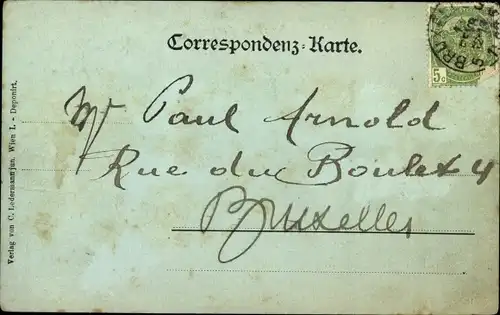 Correspondenz-Karte.
5c
Mr Paul Arnold
Rue du Boulet 4
Bruxelles
Verlag von C. Ledermann jun. Wien I. - Deponirt.